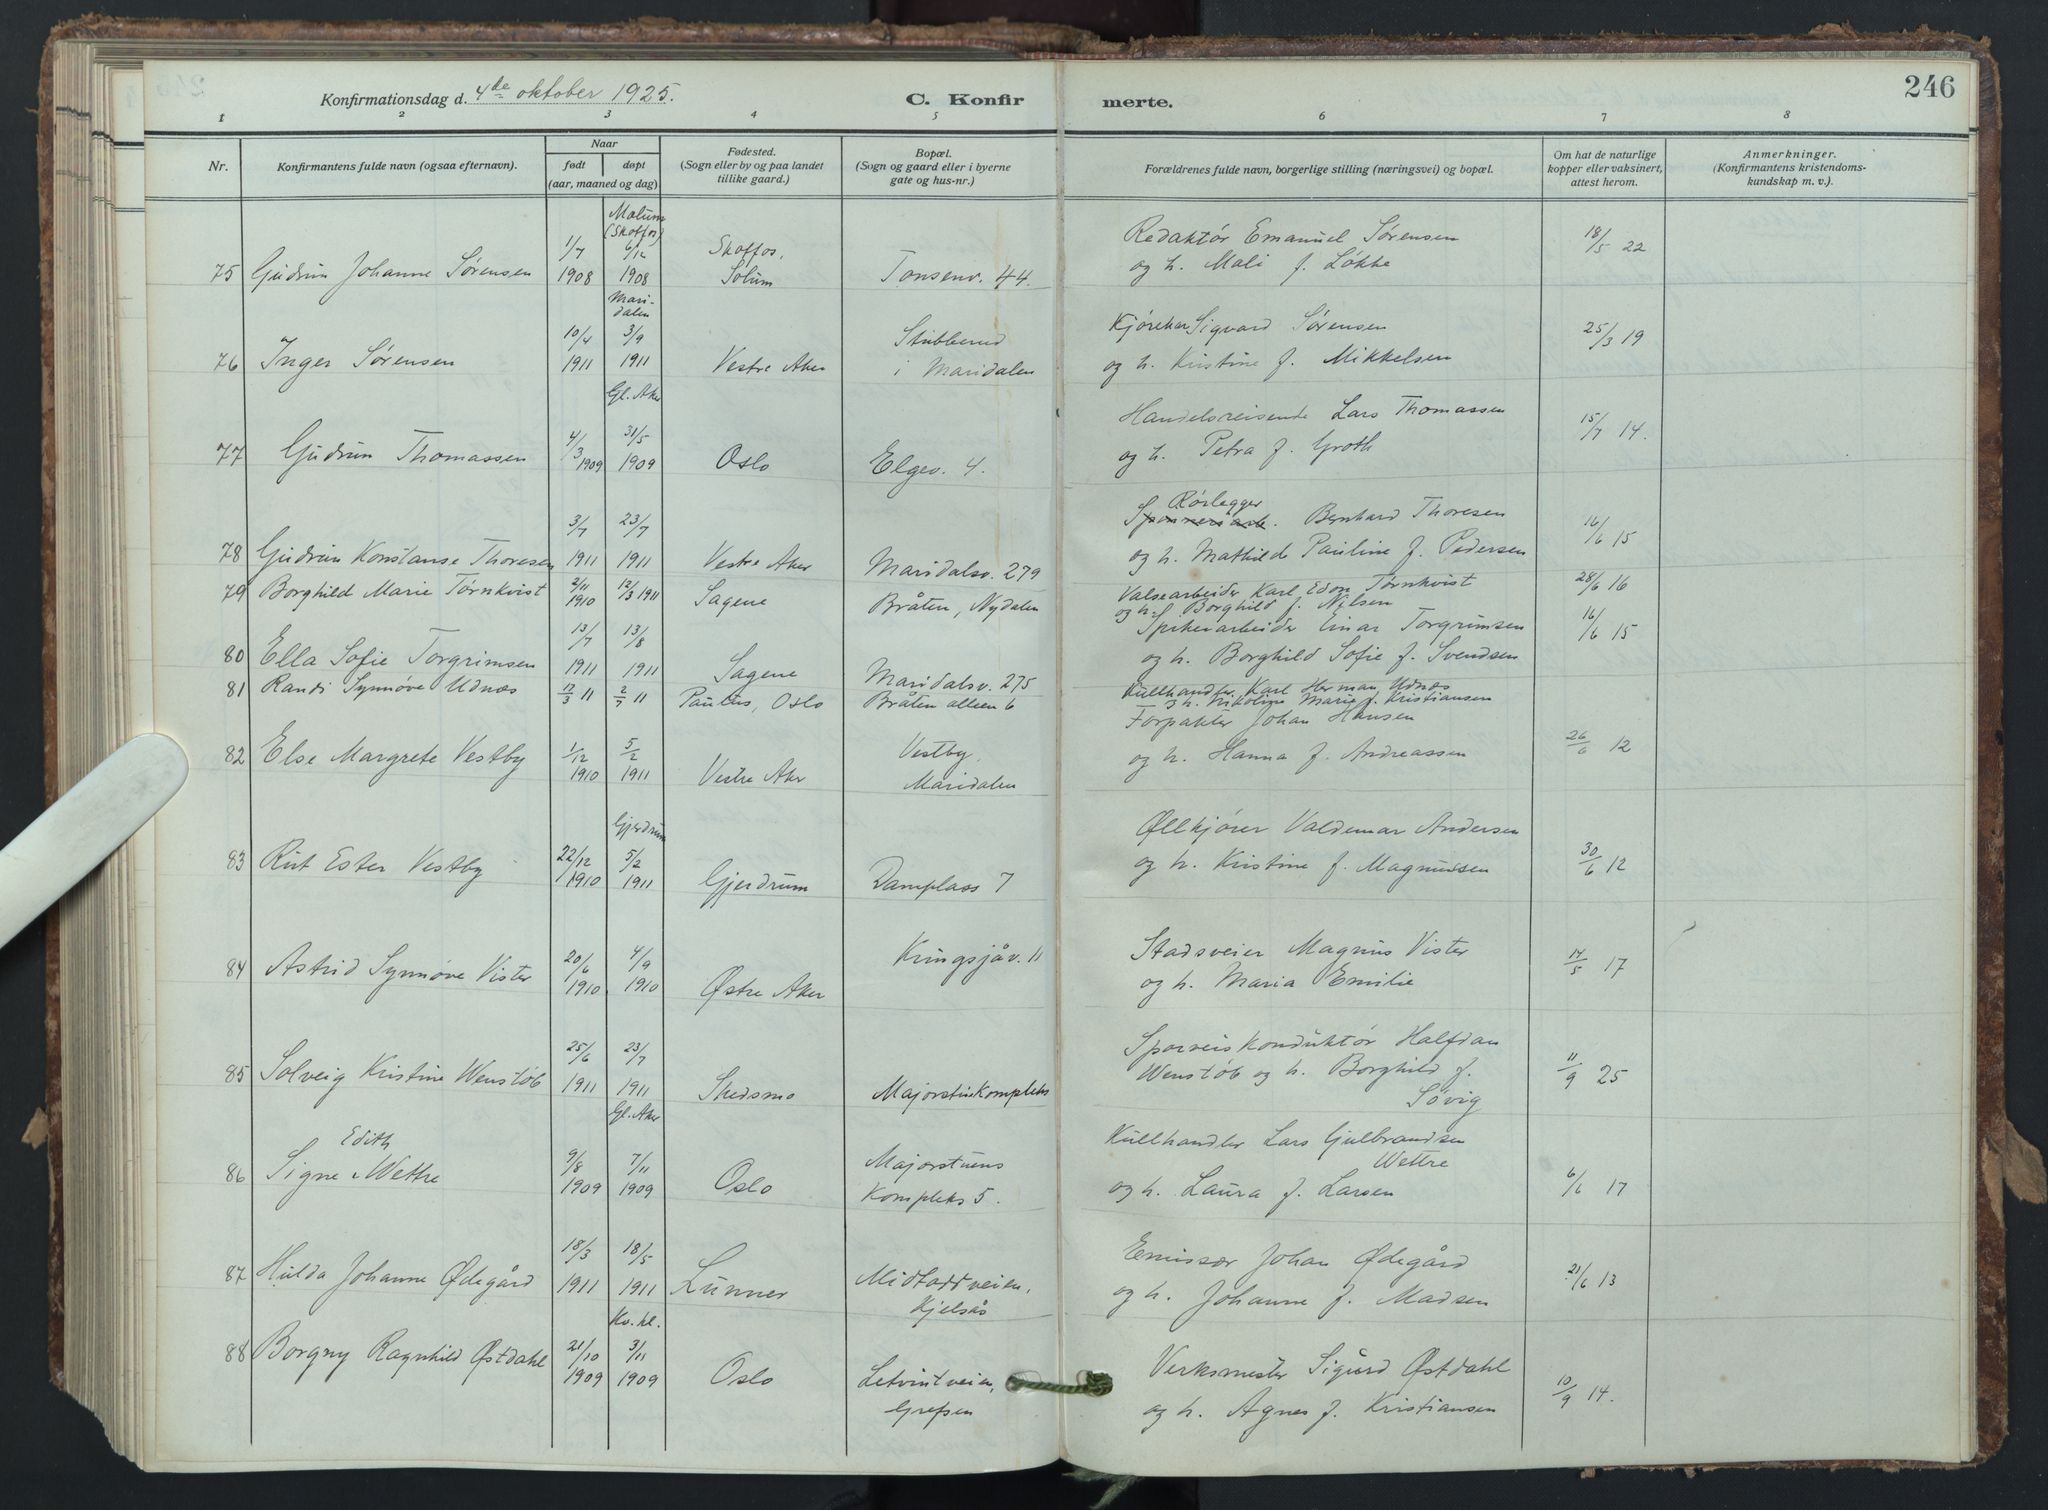 246
Konfirmationsdag d. 4de oktober 1925. C. Konfir merte.
1 2 3 4 5 6 7 8
Nr. Konfirmantens fulde navn (ogsaa efternavn).
Naar
født døpt
(aar, maaned og dag)
Fødested.
(Sogn eller by og paa landet
tillike gaard.)
Bopæl.
(Sogn og gaard eller i byerne
gate og hus-nr.)
Forældrenes fulde navn, borgerlige stilling (næringsvei) og bopæl.
Om hat de naturlige
kopper eller vaksinert,
attest herom.
Anmerkninger.
(Konfirmantens kristendoms-
kundskap m. v.).
Melum
(Skotfos)
1/7 6/12 Skotfos, Redaktør Emanuel Sørensen 18/5 22
75 Gudrun Johanne Sørensen 1908 1908 Solum Tonsenv. 44. og h. Mali f. Løkke
Mari-
dalen
10/4 3/9 Stubberud Kjørekar Sigvard Sørensen 25/3 19
76 Inger Sørensen 1911 1911 Vestre Aker i Maridalen og h. Kristine f. Mikkelsen
Gl. Aker
4/3 31/5 Handelsreisende Lars Thomassen 15/7 14.
77 Gudrun Thomassen 1909 1909 Oslo Elgev. 4. og h. Petra f. Groth
Rørlegger
3/7 23/7 Bernhard Thoresen 16/6 15
78 Gudrun Konstanse Thoresen 1911 1911 Vestre Aker Maridalsv. 279 og h. Mathilde Pauline f. Pedersen
79 Borghild Marie Tørnkvist 2/11 1910 12/3 1911 Sagene Bråten, Nydalen Valsearbeider Karl Edon Tørnkvist 28/6 16
og h. Borghild f. Nilsen
13/7 13/8 Spikerarbeider Einar Torgrimsen 16/6 15
80 Ella Sofie Torgrimsen 1911 1911 Sagene Maridalsv. 275 og h. Borghild Sofie f. Svendsen
81 Randi Synnøve Udnæs 12/3 11 2/7 11 Paulus, Oslo Bråten alleen 6 Kullhandler Karl Herman Udnæs
og h. Nikoline Marie f. Kristiansen
1/12 5/2 Vestby, Forpakter Johan Hansen 26/6 12
82 Else Margrete Vestby 1910 1911 Vestre Aker Maridalen og h. Hanna f. Andreassen
Gjerdrum
22/12 5/2 Øllkjører Valdemar Andersen 30/6 12
83 Rut Ester Vestby 1910 1911 Gjerdrum Damplass 7 og h. Kristine f. Magnussen
20/6 4/9 Kringsjåv. 11 Stadsveier Magnus Vister 14/5 17
84 Astrid Synnøve Vister 1910 1910 Østre Aker og h. Maria Emilie
25/6 23/7 Sporveiskonduktør Halfdan 11/9 25
85 Solveig Kristine Wenstøb 1911 1911 Skedsmo Majorstukompleks Wenstøb og h. Borghild f.
Søvig
Gl. Aker
Edith 9/8 7/11 Majorstuens Kullhandler Lars Gulbrandsen
Wettre
86 Signe Wettre 1909 1909 Oslo Kompleks 5. og h. Laura f. Larsen 6/6 17
18/3 18/5 Emissær Johan Ødegård 21/6 13
87 Hulda Johanne Ødegård 1911 1911 Lunner Midtoddveien, og h. Johanne f. Madsen
Kjelsås
Kv. kl.
88 Borgny Ragnhild Østdahl 21/10 3/11 Verksmester Sigurd Østdahl 10/9 14.
1909 1909 Oslo Letvintveien, og h. Agnes f. Kristiansen
Grefsen